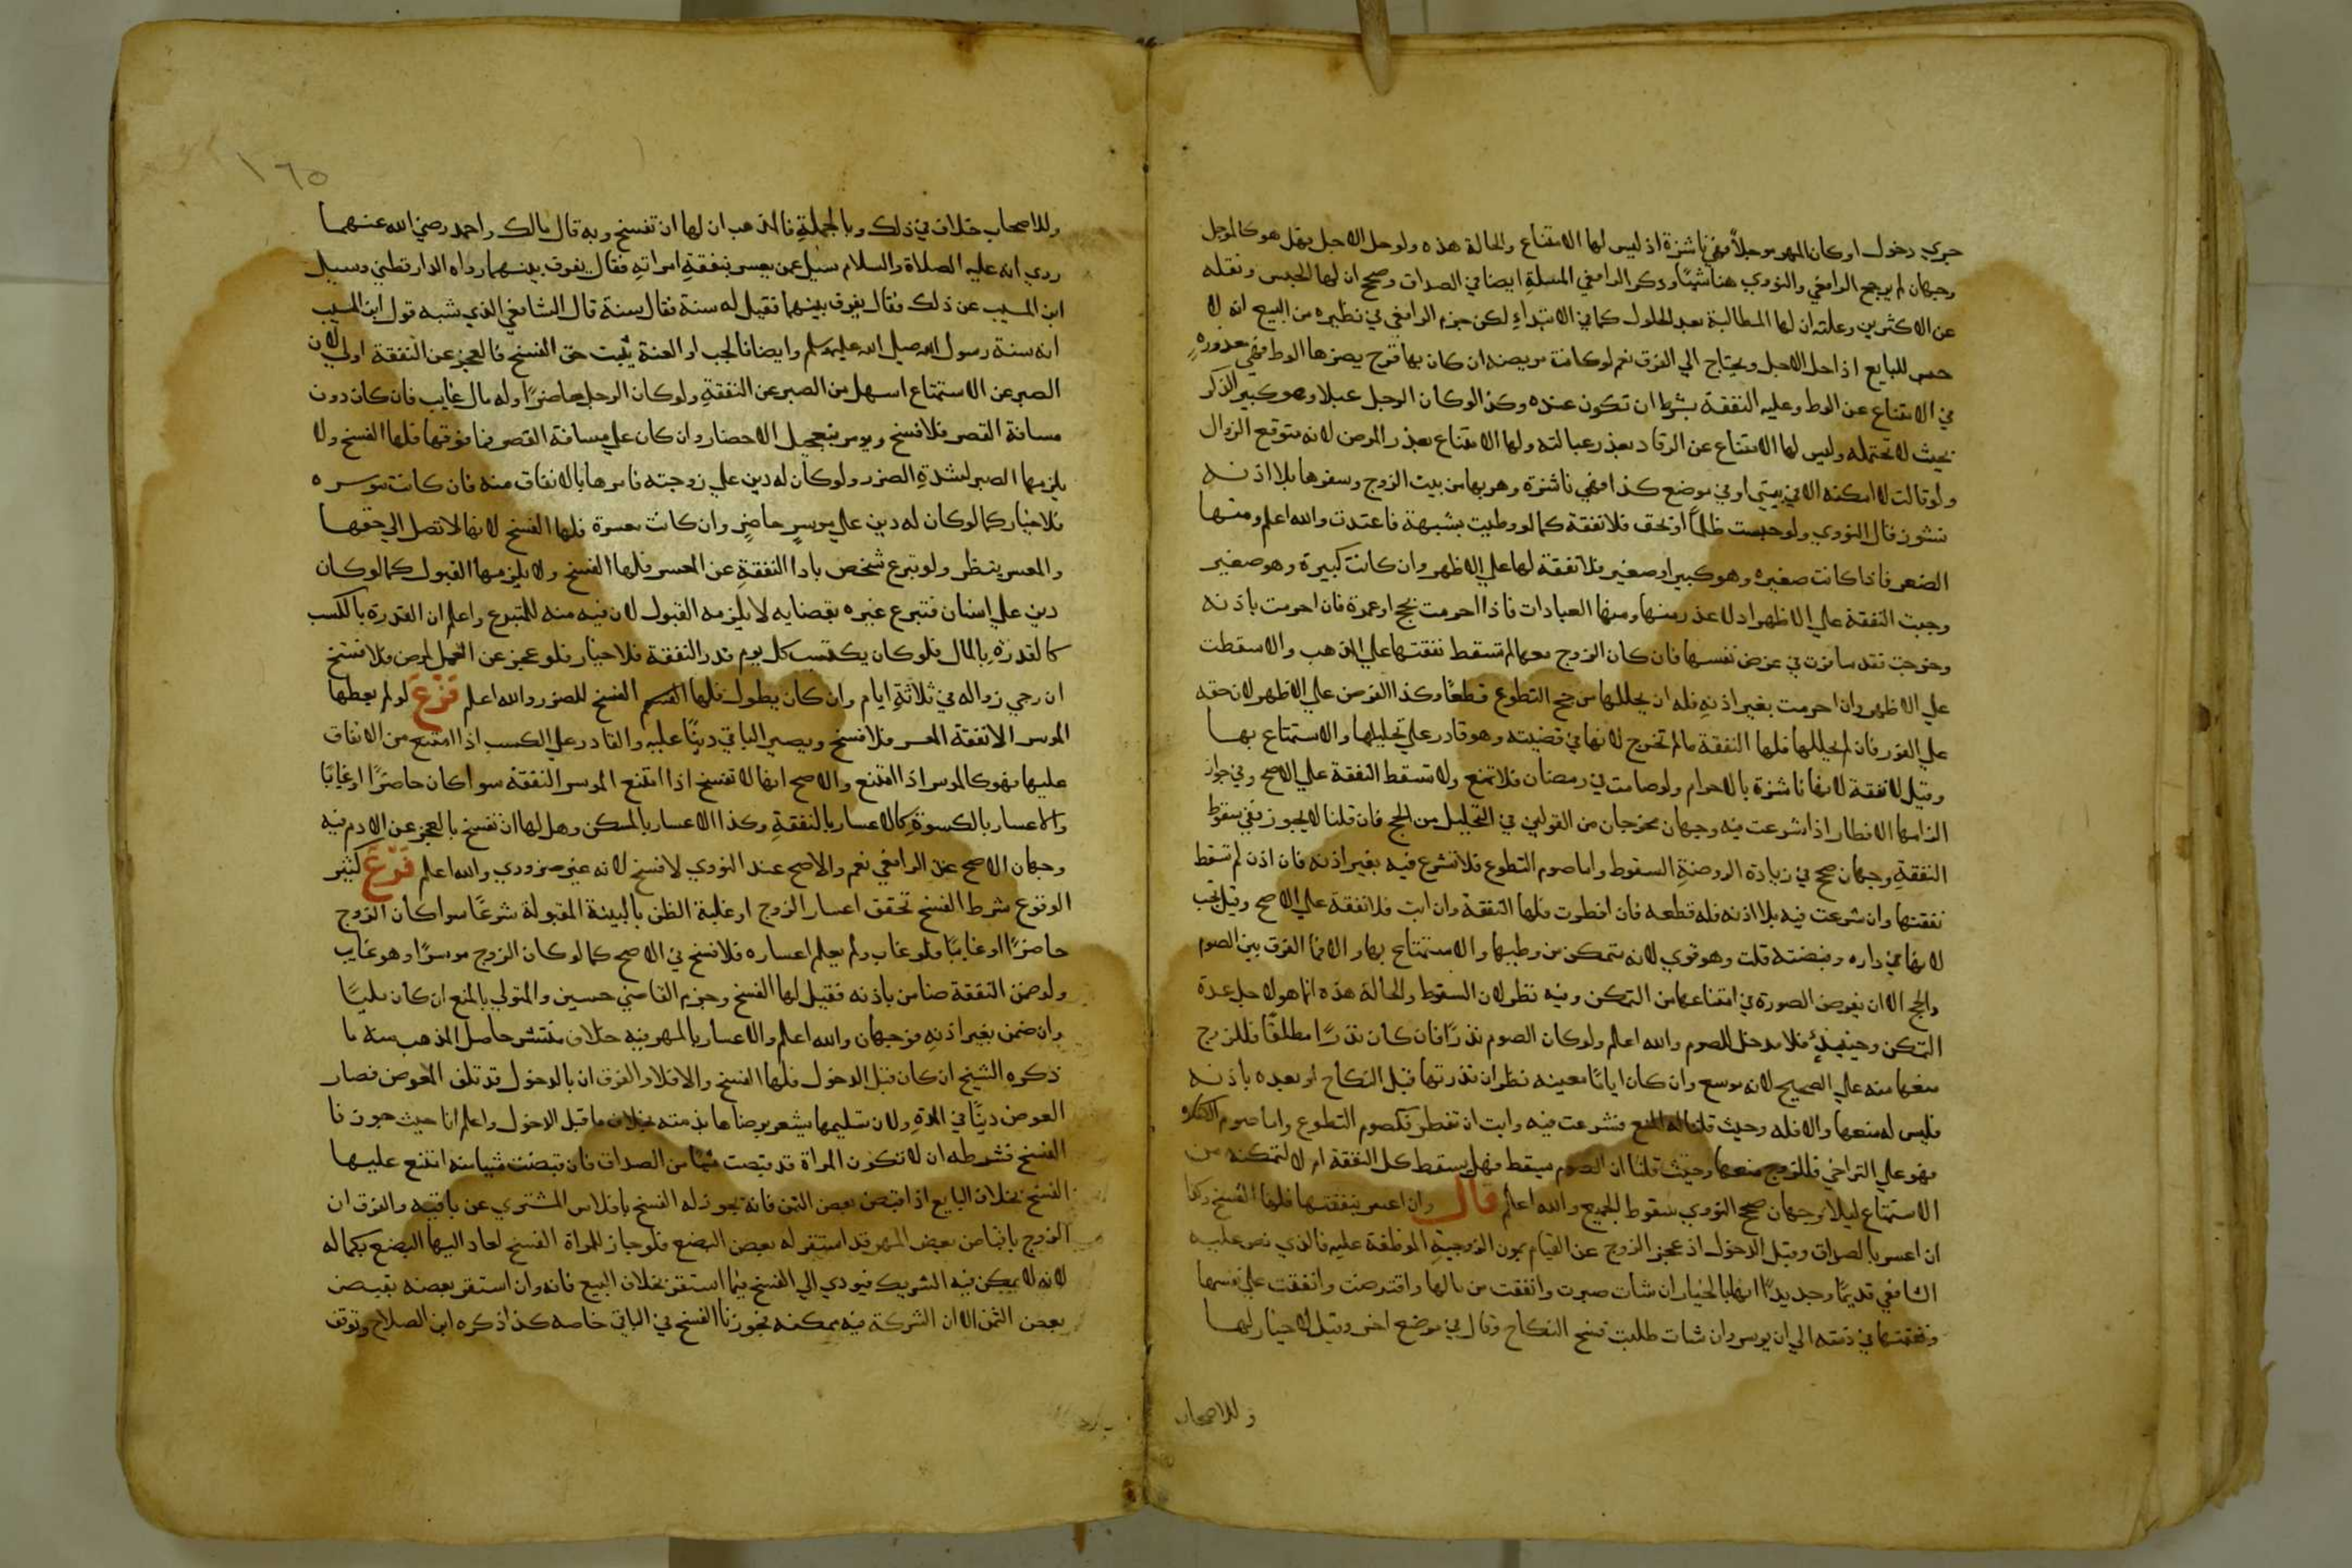 جري دخول او كان المهر موجلا فهي ناشزة اذ ليس لها الامتناع والحالة هذه ولو حل الاجل فهل هو كالموجل
وجهان لم يرجح الرافعي والنووي هنا شيئا وذكر الرافعي المسلة ايضا في الصداق وصحح ان لها الحبس ونقله
عن الاكثرين وعلته ان لها المطالبة بعد الحلول كما في الابتداء لكن جزم الرافعي في نظيره من البيع انه لا
حبس للبايع اذا حل الاجل ويحتاج الي الفرق نعم لو كانت مريضه او كان بها قرح يضرها الوط فهي معذوره
في الامتناع عن الوط وعليه النفقة بشرط ان تكون عنده وكذا لو كان الرجل عبلا وهو كبير الذكر
بحيث لا تحتمله وليس لها الامتناع عن الرقاد بعذر عبالته ولها الامتناع بعذر المرض لانه متوقع الزوال
ولو قالت لا امكنه الا في بيتي او في موضع كذا فهي ناشزة وهربها من بيت الزوج وسفرها بلا اذنه
نشوز قال النووي ولو حبست ظلما او بحق فلا نفقة كما لو وطيت بشبهة فاعتدت والله اعلم ومنها
الصغر فاذا كانت صغيره وهو كبير او صغير فلا نفقة لها علي الاظهر وان كانت كبيرة وهو صغير
وجبت النفقة علي الاظهر اذ لا عذر منها ومنها العبادات فاذا احرمت بحج او عمرة فان احرمت باذنه
وخرجت فقد سافرت في غرض نفسها فان كان الزوج معها لم تسقط نفقتها علي المذهب والا سقطت
علي الاظهر وان احرمت بغير اذنه فله ان يحللها من حج التطوع قطعا وكذا الفرض علي الاظهر لان حقه
علي الفور فان لم يحللها فلها النفقة ما لم تخرج لانها في قبضته وهو قادر علي تحليلها والاستمتاع بها
وقيل لا نفقة لانها ناشزة بالاحرام ولو صامت في رمضان فلا تمنع ولا تسقط النفقة علي الاصح وفي جواز
الزامها الافطار اذا شرعت فيه وجهان مخرجان من القولين في التحليل من الحج فان قلنا لا يجوز ففي سقوط
النفقة وجهان صحح في زيادة الروضة السقوط واما صوم التطوع فلا تشرع فيه بغير اذنه فان اذن لم تسقط
نفقتها وان شرعت فيه بلا اذنه فله قطعه فان افطرت فلها النفقة وان ابت فلا نفقة علي الاصح وقيل تجب
لانها في داره وقبضته قلت وهو قوي لانه متمكن من وطيها والاستمتاع بها والا فما الفرق بين الصوم
والحج الا ان نفرض الصورة في امتناعها من التمكن وفيه نظر لان السقوط والحالة هذه انما هو لاجل عدة
التمكن وحينيذ فلا مدخل للصوم والله اعلم ولو كان الصوم نذرا فان كان نذرا مطلقا فللزوج
منعها منه علي الصحيح لانه موسع وان كان اياما معينه نظر ان نذرتها قبل النكاح او بعده باذنه
فليس له منعها والا فله وحيث قلنا له المنع فشرعت فيه وابت ان تفطر فكصوم التطوع واما صوم الكفاره
فهو علي التراخي فللزوج منعها وحيث قلنا ان الصوم يسقط فهل يسقط كل النفقة ام لا لتمكنه من
الاستمتاع ليلا وجهان صحح النووي سقوط الجميع والله اعلم قال وان اعسر بنفقتها فلها الفسخ وكذا
ان اعسر بالصداق وقبل الدخول اذ عجز الزوج عن القيام بمون الزوجية الموظفة عليه فالذي نص عليه
الشافعي قديما وجديدا انها بالخيار ان شات صبرت وانفقت من مالها او اقترضت وانفقت علي نفسها
ونفقتها في ذمته الي ان يوسر وان شات طلبت فسخ النكاح وقال في موضع اخر وقيل لا خيار لها
وللاصحاب
١٦٥
وللاصحاب خلاف في ذلك وبالجملة فالمذهب ان لها ان تفسخ وبه قال مالك واحمد رضي الله عنهما
روي انه عليه الصلاة والسلام سيل عمن يعسر بنفقة امراته فقال يفرق بينهما رواه الدارقطني وسيل
ابن المسيب عن ذلك فقال يفرق بينهما فقيل له سنة فقال سنة قال الشافعي الذي شبه قول ابن المسيب
انه سنة رسول الله صلي الله عليه وسلم وايضا فالجب او العنة يثبت حق الفسخ فالعجز عن النفقة اولي لان
الصبر عن الاستمتاع اسهل من الصبر عن النفقة ولو كان الرجل حاضرا وله مال غايب فان كان دون
مسافة القصر فلا فسخ ويومر بتعجيل الاحضار وان كان علي مسافة القصر فما فوقها فلها الفسخ ولا
يلزمها الصبر لشدة الضرر ولو كان له دين علي زوجته فامرها بالانفاق منه فان كانت موسره
فلا خيار كما لو كان له دين علي موسر حاضر وان كانت معسرة فلها الفسخ لانها لا تصل الي حقها
والمعسر ينظر ولو تبرع شخص باداا النفقة عن المعسر فلها الفسخ ولا يلزمها القبول كما لو كان
دين علي انسان فتبرع غيره بقضايه لا يلزمه القبول لان فيه منه للمتبرع واعلم ان القدرة بالكسب
كالقدرة بالمال فلو كان يكتسب كل يوم قدر النفقة فلا خيار فلو عجز عن العمل لمرض فلا فسخ
ان رجي زواله في ثلاثة ايام وان كان يطول فلها الفسخ للضرر والله اعلم فرع لو لم يعطها
الموسر الا نفقة المعسر فلا فسخ ويصير الباقي دينا عليه والقادر علي الكسب اذا امتنع من الانفاق
عليها فهو كالموسر اذا امتنع والاصح انها لا تفسخ اذا امتنع الموسر النفقة سوا كان حاضرا او غايبا
والاعسار بالكسوة كالاعسار بالنفقة وكذا الاعسار بالمسكن وهل لها ان تفسخ بالعجز عن الادم فيه
وجهان الاصح عند الرافعي نعم والاصح عند النووي لا فسخ لانه غير ضروري والله اعلم فرع كثير
الوقوع شرط الفسخ تحقق اعسار الزوج او غلبة الظن بالبينة المقبولة شرعا سوا كان الزوج
حاضرا او غايبا فلو غاب ولم يعلم اعساره فلا فسخ في الاصح كما لو كان الزوج موسرا وهو غايب
ولو ضمن النفقة ضامن باذنه فقيل لها الفسخ وجزم القاضي حسين والمتولي بالمنع ان كان مليا
وان ضمن بغير اذنه فوجهان والله اعلم والاعسار بالمهر فيه خلاف منتشر حاصل المذهب منه ما
ذكره الشيخ ان كان قبل الدخول فلها الفسخ والا فلا والفرق ان بالدخول قد تلف المعوض فصار
العوض دينا في الذمة ولان تسليمها يشعر برضاها بذمته بخلاف ما قبل الدخول واعلم انا حيث جوزنا
الفسخ فشرطه ان لا تكون المراة قد قبضت شيا من الصداق فان قبضت شيا منه امتنع عليها
الفسخ بخلاف البايع اذا قبض بعض الثمن فانه يجوز له الفسخ بافلاس المشتري عن باقيه والفرق ان
الزوج باقباض بعض المهر قد استقر له بعض البضع فلو جاز للمراة الفسخ لعاد اليها البضع بكماله
لانه لا يمكن فيه التشريك فيودي الي الفسخ فيما استقر بخلاف البيع فانه وان استقر بعضه بقبض
بعض الثمن الا ان الشركة فيه ممكنه فجوزنا الفسخ في الباقي خاصه كذا ذكره ابن الصلاح وتوقف